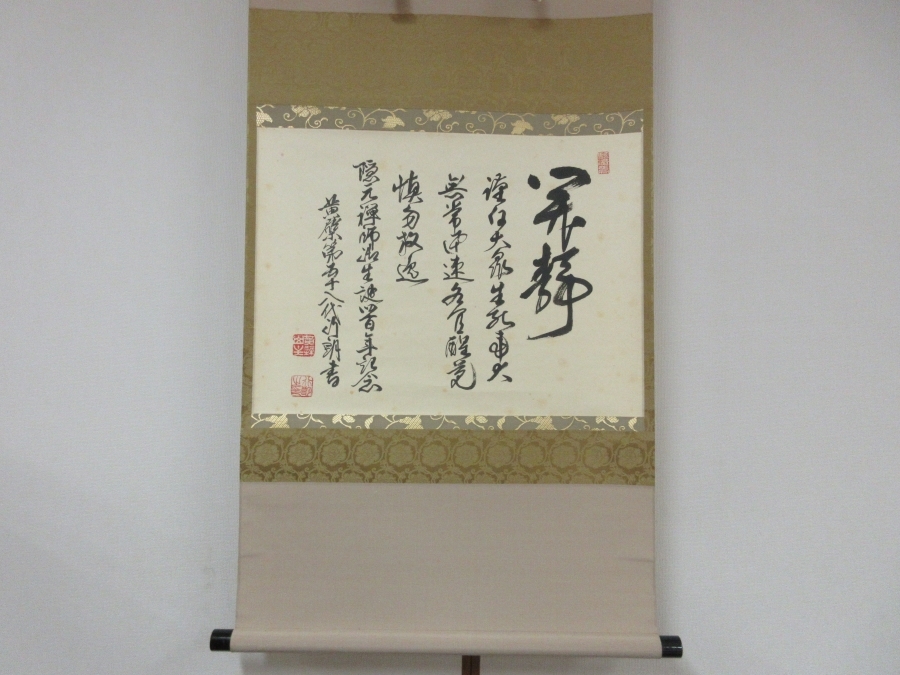 開静
謹白大衆生死事大
無常迅速各宜醒覚
慎勿放逸
隠元禅師誕生 年記念
黄檗第五十八代 書